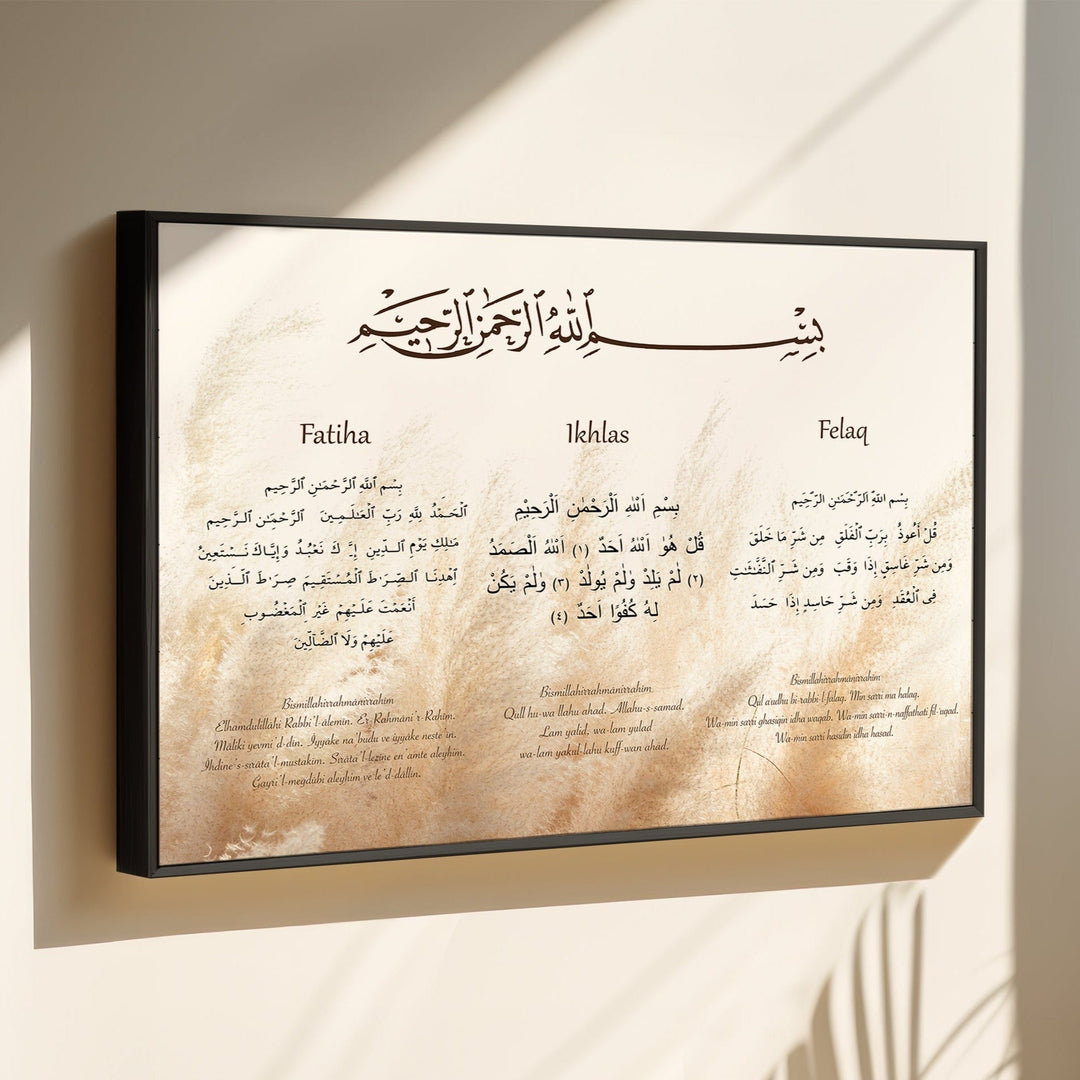 بِسْمِ ٱللّٰهِ ٱلرَّحْمَٰنِ ٱلرَّحِيمِ
Fatiha
بِسْمِ ٱللَّهِ ٱلرَّحْمَٰنِ ٱلرَّحِيمِ
ٱلْحَمْدُ لِلَّهِ رَبِّ ٱلْعَـٰلَمِينَ ٱلرَّحْمَـٰنِ ٱلرَّحِيمِ
مَـٰلِكِ يَوْمِ ٱلدِّينِ إِيَّاكَ نَعْبُدُ وَإِيَّاكَ نَسْتَعِينُ
ٱهْدِنَا ٱلصِّرَٰطَ ٱلْمُسْتَقِيمَ صِرَٰطَ ٱلَّذِينَ
أَنْعَمْتَ عَلَيْهِمْ غَيْرِ ٱلْمَغْضُوبِ
عَلَيْهِمْ وَلَا ٱلضَّآلِّينَ
Bismillahirrahmânirrahim
Elhamdulillâhi Rabbi'l-âlemin. Er-Rahmâni'r-Rahim.
Mâliki yevmi'd-din. Iyyâke na'budu ve iyyâke neste'in.
Ihdine's-sırâta'l-mustakim. Sırâta'l-lezine en'amte aleyhim.
Gayri'l-megdûbi aleyhim ve le'd-dâllin.
Ikhlas
بِسْمِ اَللهِ اَلْرَحْمٰنِ اَلْرَحِيْمِ
قُلْ هُوَ اَللهُ اَحَدٌ (١) اَللهُ اَلْصَمَدُ
(٢) لَمْ يَلِدْ وَلَمْ يُولَدْ (٣) وَلَمْ يَكُنْ
لَهُ كُفُوًا اَحَدٌ (٤)
Bismillahirrahmânirrahim
Qull hu-wa llahu ahad. Allahu-s-samad.
Lam yalid, wa-lam yulad
wa-lam yakul-lahu kuff-wan ahad.
Felaq
بِسْمِ اللَّهِ الرَّحْمَٰنِ الرَّحِيْمِ
قُلْ أَعُوذُ بِرَبِّ ٱلْفَلَقِ مِن شَرِّ مَا خَلَقَ
وَمِن شَرِّ غَاسِقٍ إِذَا وَقَبَ وَمِن شَرِّ ٱلنَّفَّـٰثَـٰتِ
فِى ٱلْعُقَدِ وَمِن شَرِّ حَاسِدٍ إِذَا حَسَدَ
Bismillahirrahmânirrahim
Qùl a'udhu bi-rabbi-l-falaq. Min sarri ma halaq.
Wa-min sarri ghasiqin idha waqab. Wa-min sarri-n-naffathati fil-'uqad.
Wa-min sarri hasidin idha hasad.